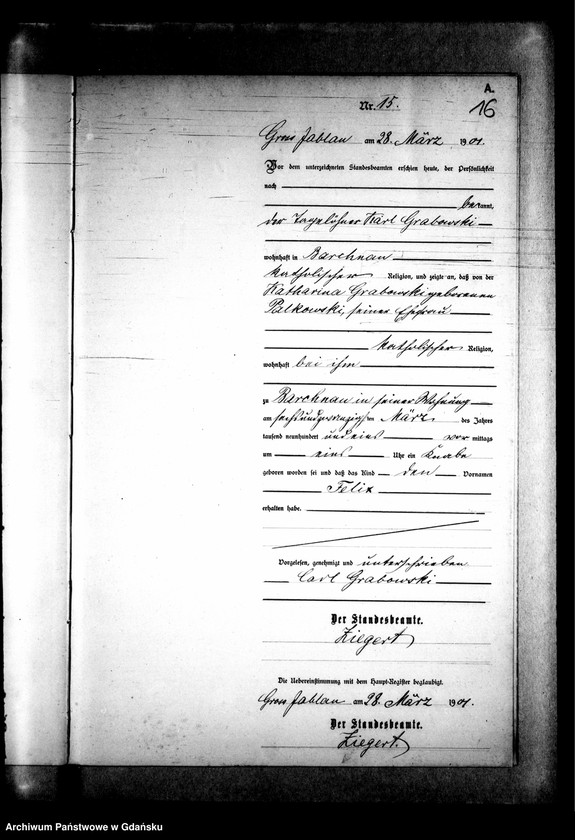 A.
16
Nr. 15.
Gross Jablau am 28. März 1901.
Vor dem unterzeichneten Standesbeamten erschien heute, der Persönlichkeit
nach
bekannt,
der Tagelöhner Karl Grabowski
wohnhaft in Barchnau
katholischer Religion, und zeigte an, daß von der
Katharina Grabowski geborenen
Palkowski, seiner Ehefrau
katholischer Religion,
wohnhaft bei ihm
zu Barchnau in seiner Wohnung
am sechsundzwanzigsten März des Jahres
tausend neunhundert und eins vor mittags
um eins Uhr ein Knabe
geboren worden sei und daß das Kind den Vornamen
Felix
erhalten habe.
Vorgelesen, genehmigt und unterschrieben
Carl Grabowski
Der Standesbeamte.
Ziegert
Die Uebereinstimmung mit dem Haupt-Register beglaubigt.
Gross Jablau am 28. März 1901.
Der Standesbeamte.
Ziegert.
Archiwum Państwowe w Gdańsku